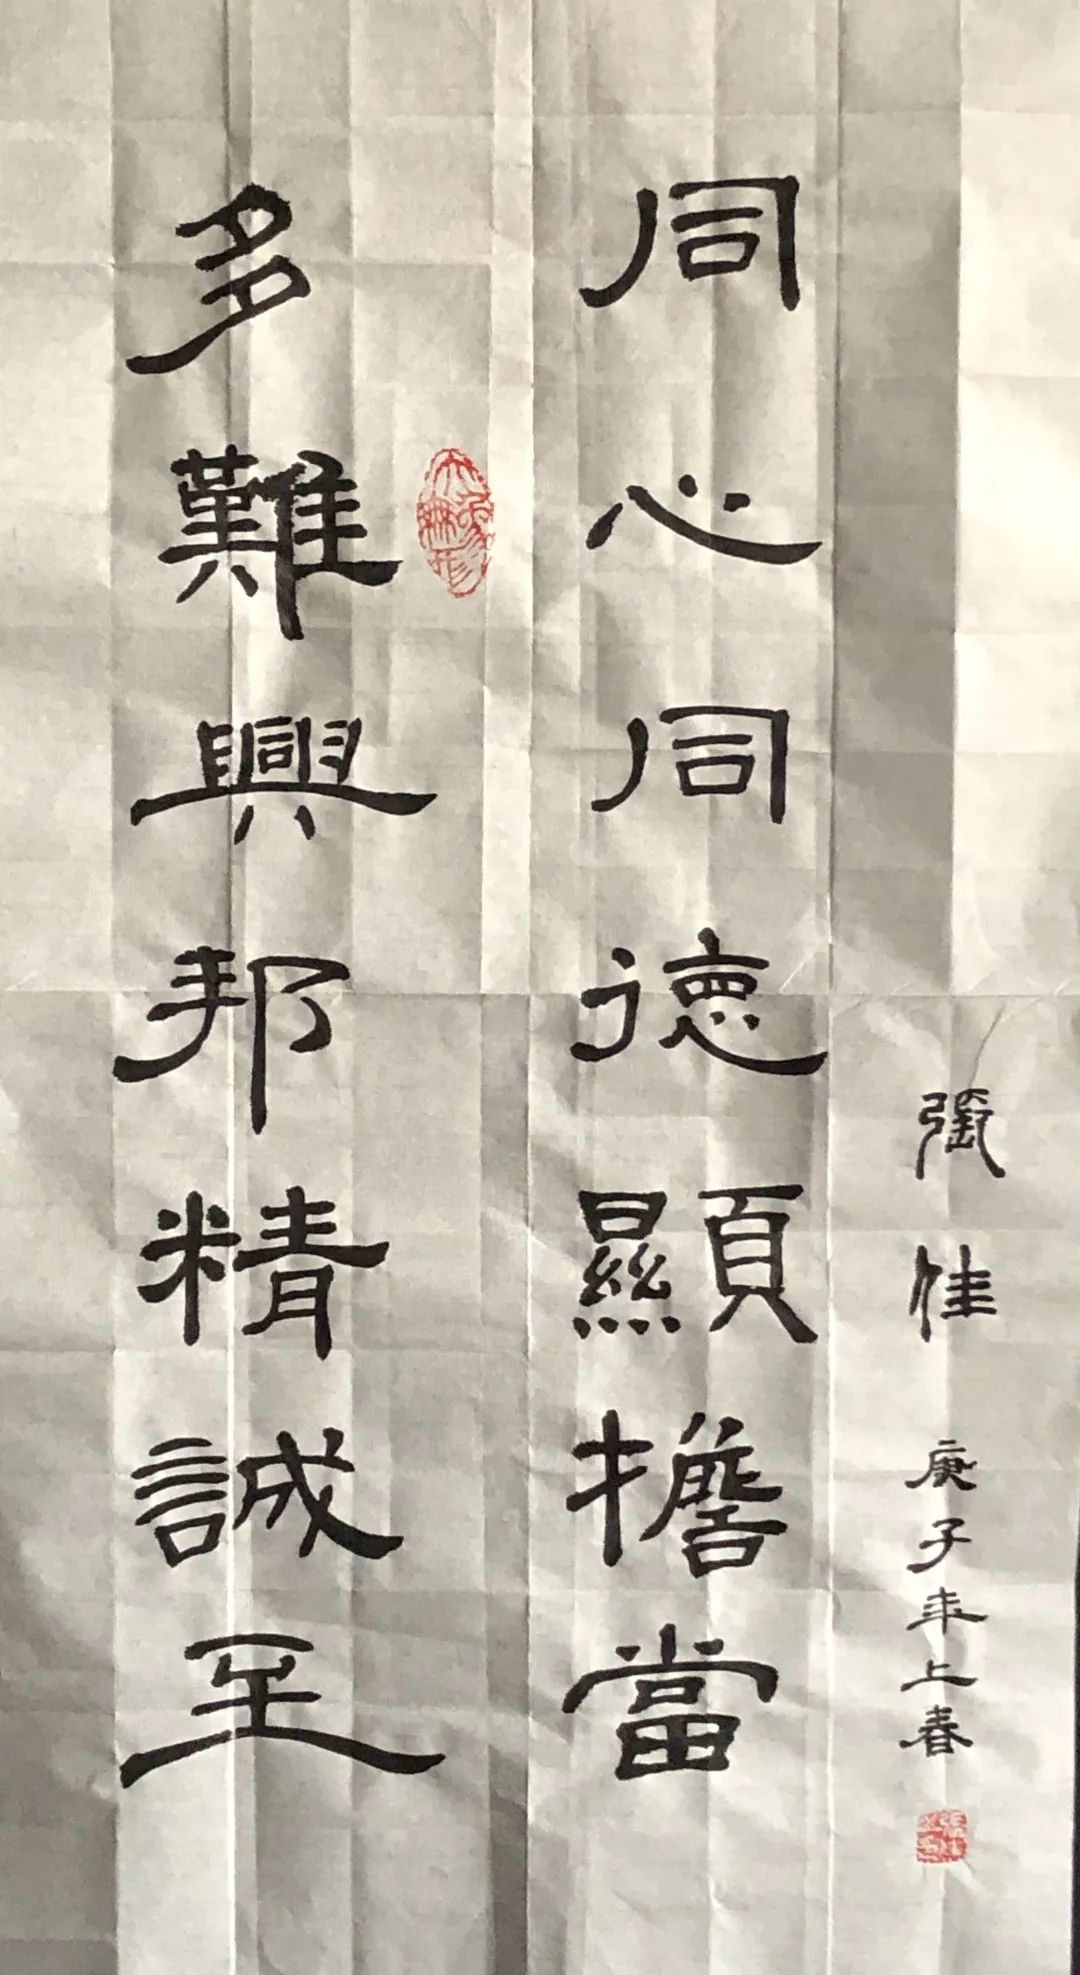 多難興邦精誠至
大象無形
同心同德顯擔當
張佳 庚子年上春